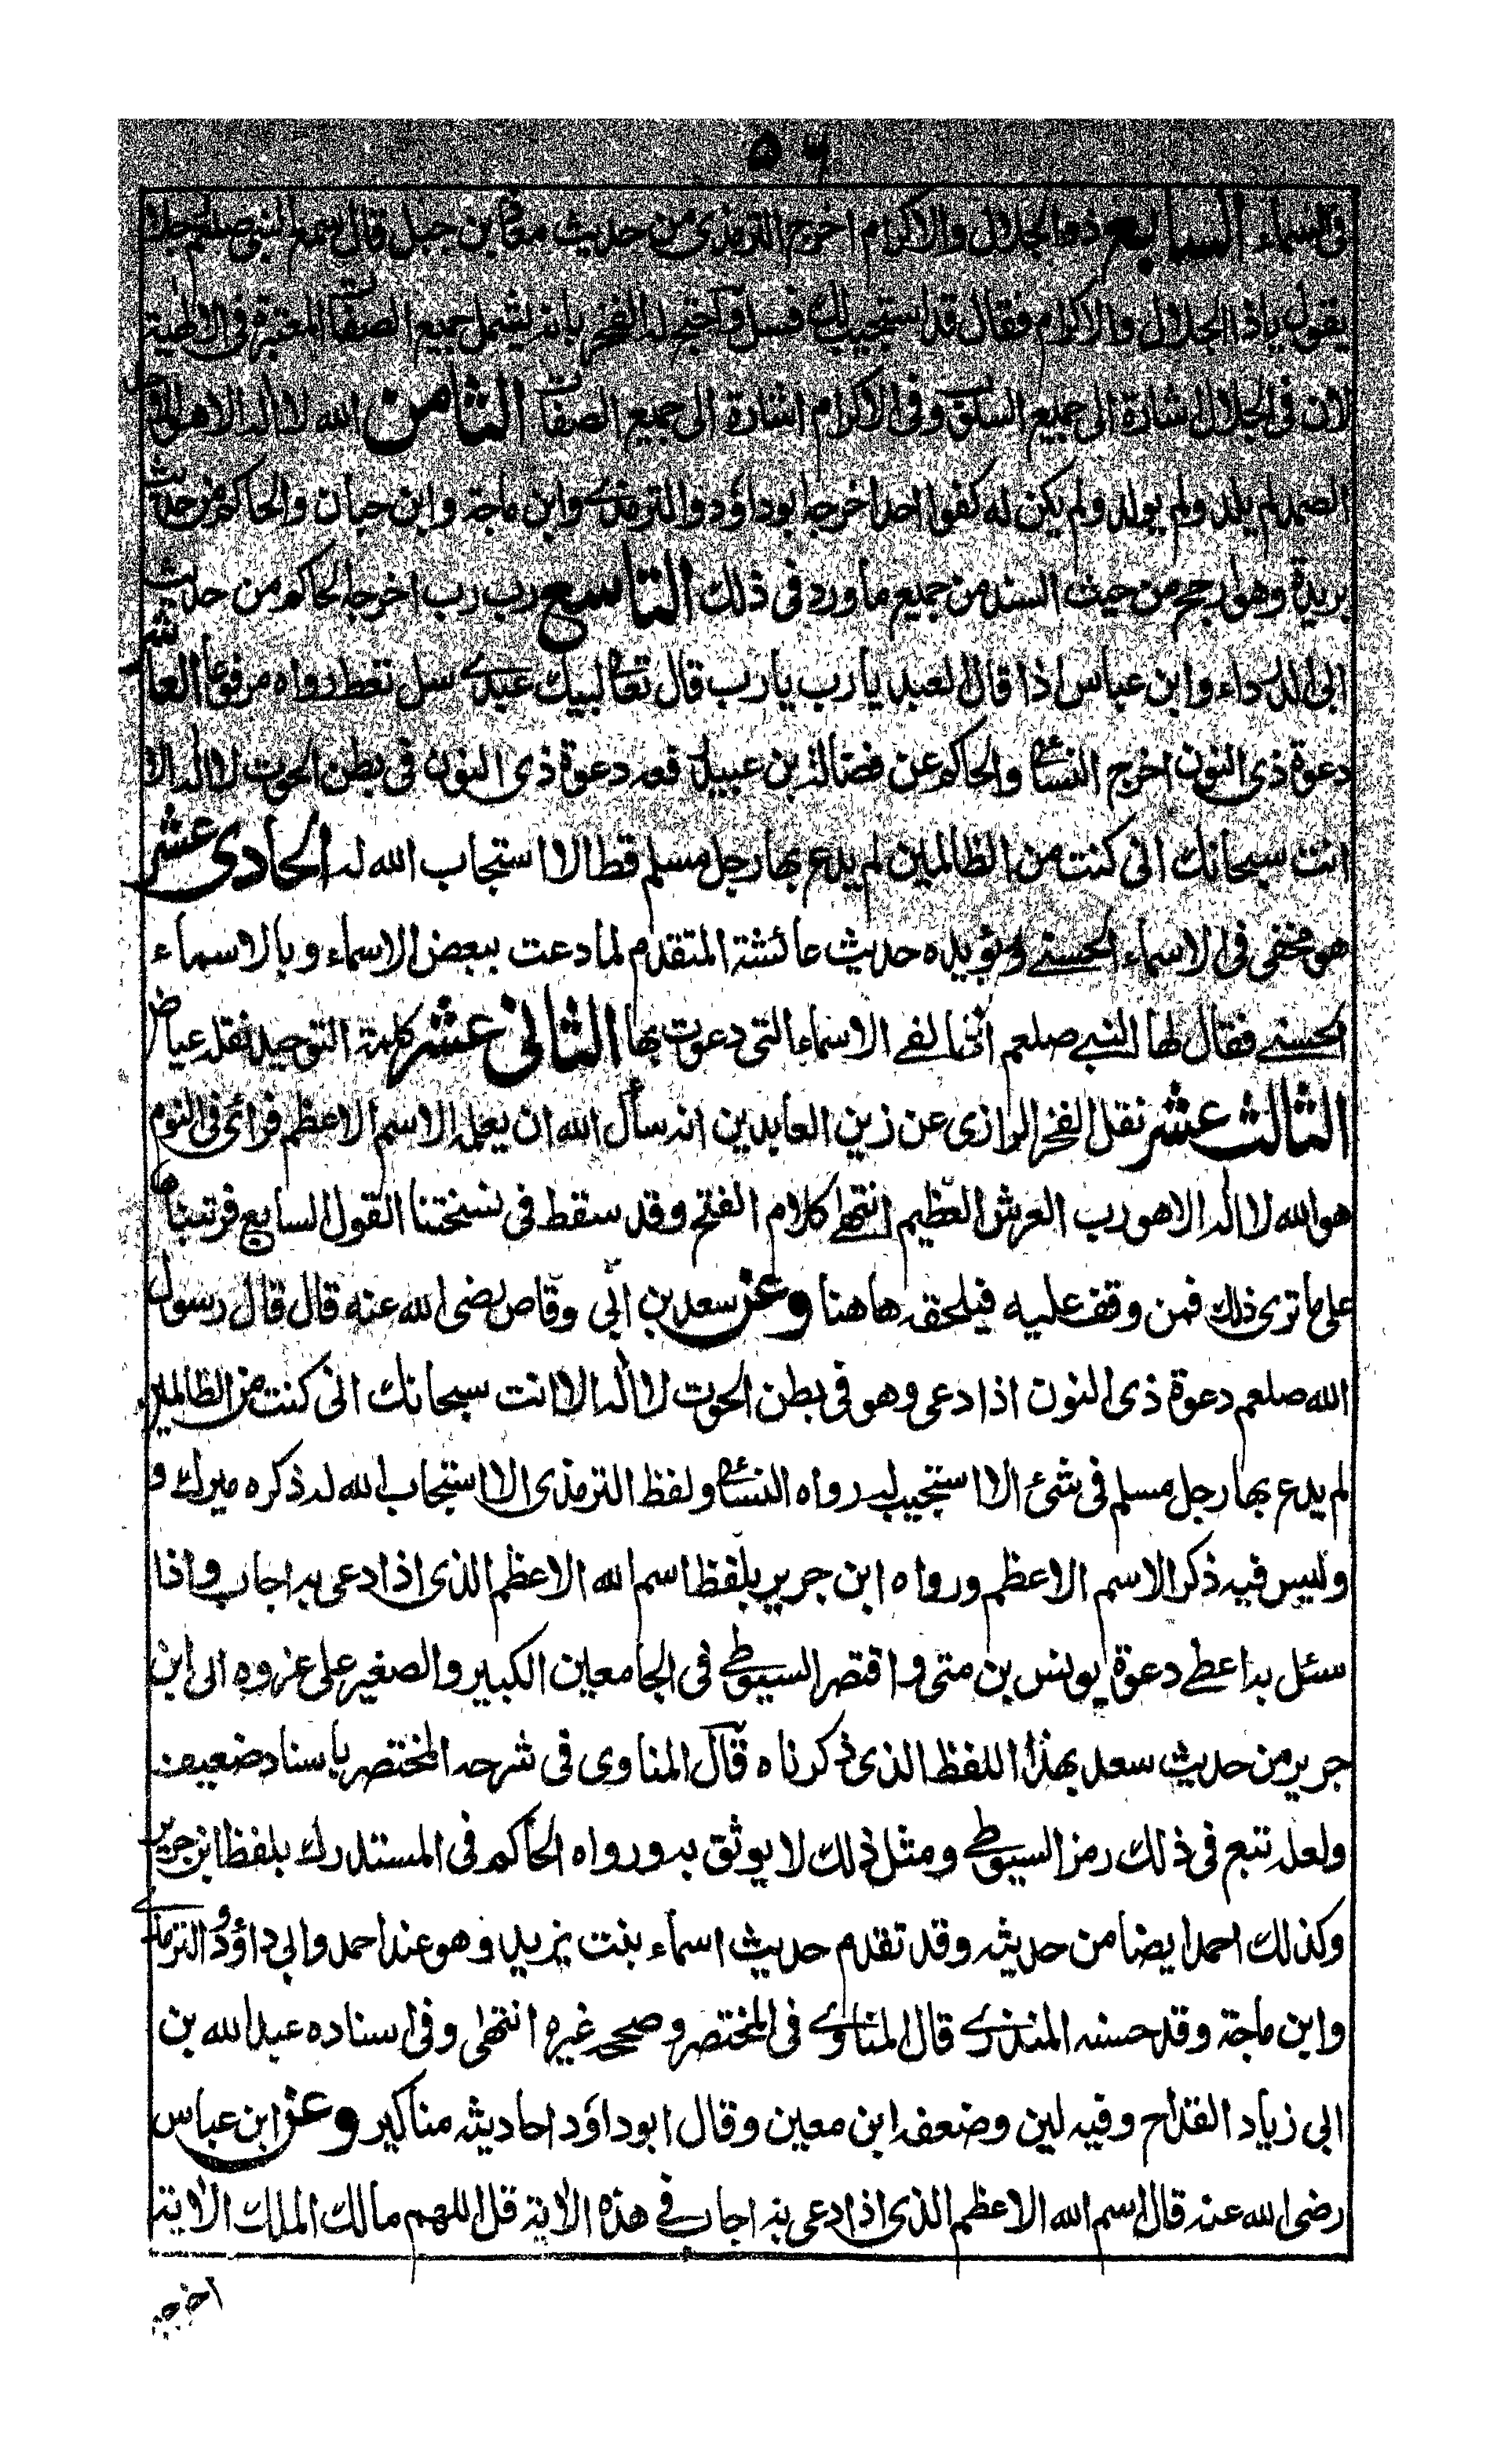 ٥٦
فى السماء السابع ذو الجلال والاكرام اخرج الترمذى من حديث معاذ بن جبل قال سمع النبى صلعم رجلا
يقول ياذا الجلال والاكرام فقال قد استجيب لك فسل واحتج له الفخر بانه يشمل جميع الصفات المعتبرة فى الالهية
لان فى الجلال اشارة الى جميع السلوب وفى الاكرام اشارة الى جميع الصفات الثامن الله لا اله الا هو
الصمد لم يلد ولم يولد ولم يكن له كفوا احد اخرجه ابوداؤد والترمذى وابن ماجة وابن حبان والحاكم من حديث
بريدة وهو ارجح من حيث السند من جميع ما ورد فى ذلك التاسع رب رب اخرجه الحاكم من حديث
ابى الدرداء وابن عباس اذا قال العبد يارب يارب قال تعالى لبيك عبدى سل تعط رواه مرفوعا العاشر
دعوة ذى النون اخرج النسائى والحاكم عن فضالة بن عبيد رفعه دعوة ذى النون فى بطن الحوت لا اله الا
انت سبحانك انى كنت من الظالمين لم يدع بها رجل مسلم قط الا استجاب الله له الحادى عشر
هو مخفى فى الاسماء الحسنى ويؤيده حديث عائشة المتقدم لما دعت ببعض الاسماء وبالاسماء
الحسنى فقال لها النبى صلعم انها لفى الاسماء التى دعوت بها الثانى عشر كلمة التوحيد نقله عياض
الثالث عشر نقل الفخر الرازى عن زين العابدين انه سأل الله ان يعلمه الاسم الاعظم فرائ فى النوم
هو الله لا اله الا هو رب العرش العظيم انتهى كلام الفتح وقد سقط فى نسختنا القول السابع فرتبناها
على ما ترى ذلك فمن وقف عليه فيلحقه هاهنا وعن سعد بن ابى وقاص رضى الله عنه قال قال رسول
الله صلعم دعوة ذى النون اذا دعى وهو فى بطن الحوت لا اله الا انت سبحانك انى كنت من الظالمين
لم يدع بها رجل مسلم فى شئ الا استجيب له رواه النسائى ولفظ الترمذى الا استجاب الله له ذكره ميرك و
وليس فيه ذكر الاسم الاعظم ورواه ابن جرير بلفظ اسم الله الاعظم الذى اذا دعى به اجاب واذا
سئل به اعطى دعوة يونس بن متى واقتصر السيوطى فى الجامعين الكبير والصغير على عزوه الى ابن
جرير من حديث سعد بهذا اللفظ الذى ذكرناه قال المناوى فى شرحه المختصر باسناد ضعيف
ولعله تتبع فى ذلك رمز السيوطى ومثل ذلك لا يوثق به ورواه الحاكم فى المستدرك بلفظ ابن جرير
وكذلك احمد ايضا من حديثه وقد تقدم حديث اسماء بنت يزيد وهو عند احمد وابى داؤد والترمذى
وابن ماجة وقد حسنه المنذرى قال المناوى فى المختصر وصححه غيره انتهى وفى اسناده عبد الله بن
ابى زياد القداح وفيه لين وضعفه ابن معين وقال ابوداود احاديثه مناكير وعن ابن عباس
رضى الله عنه قال اسم الله الاعظم الذى اذا دعى به اجاب فى هذه الاية قل اللهم مالك الملك الاية
اخرجه